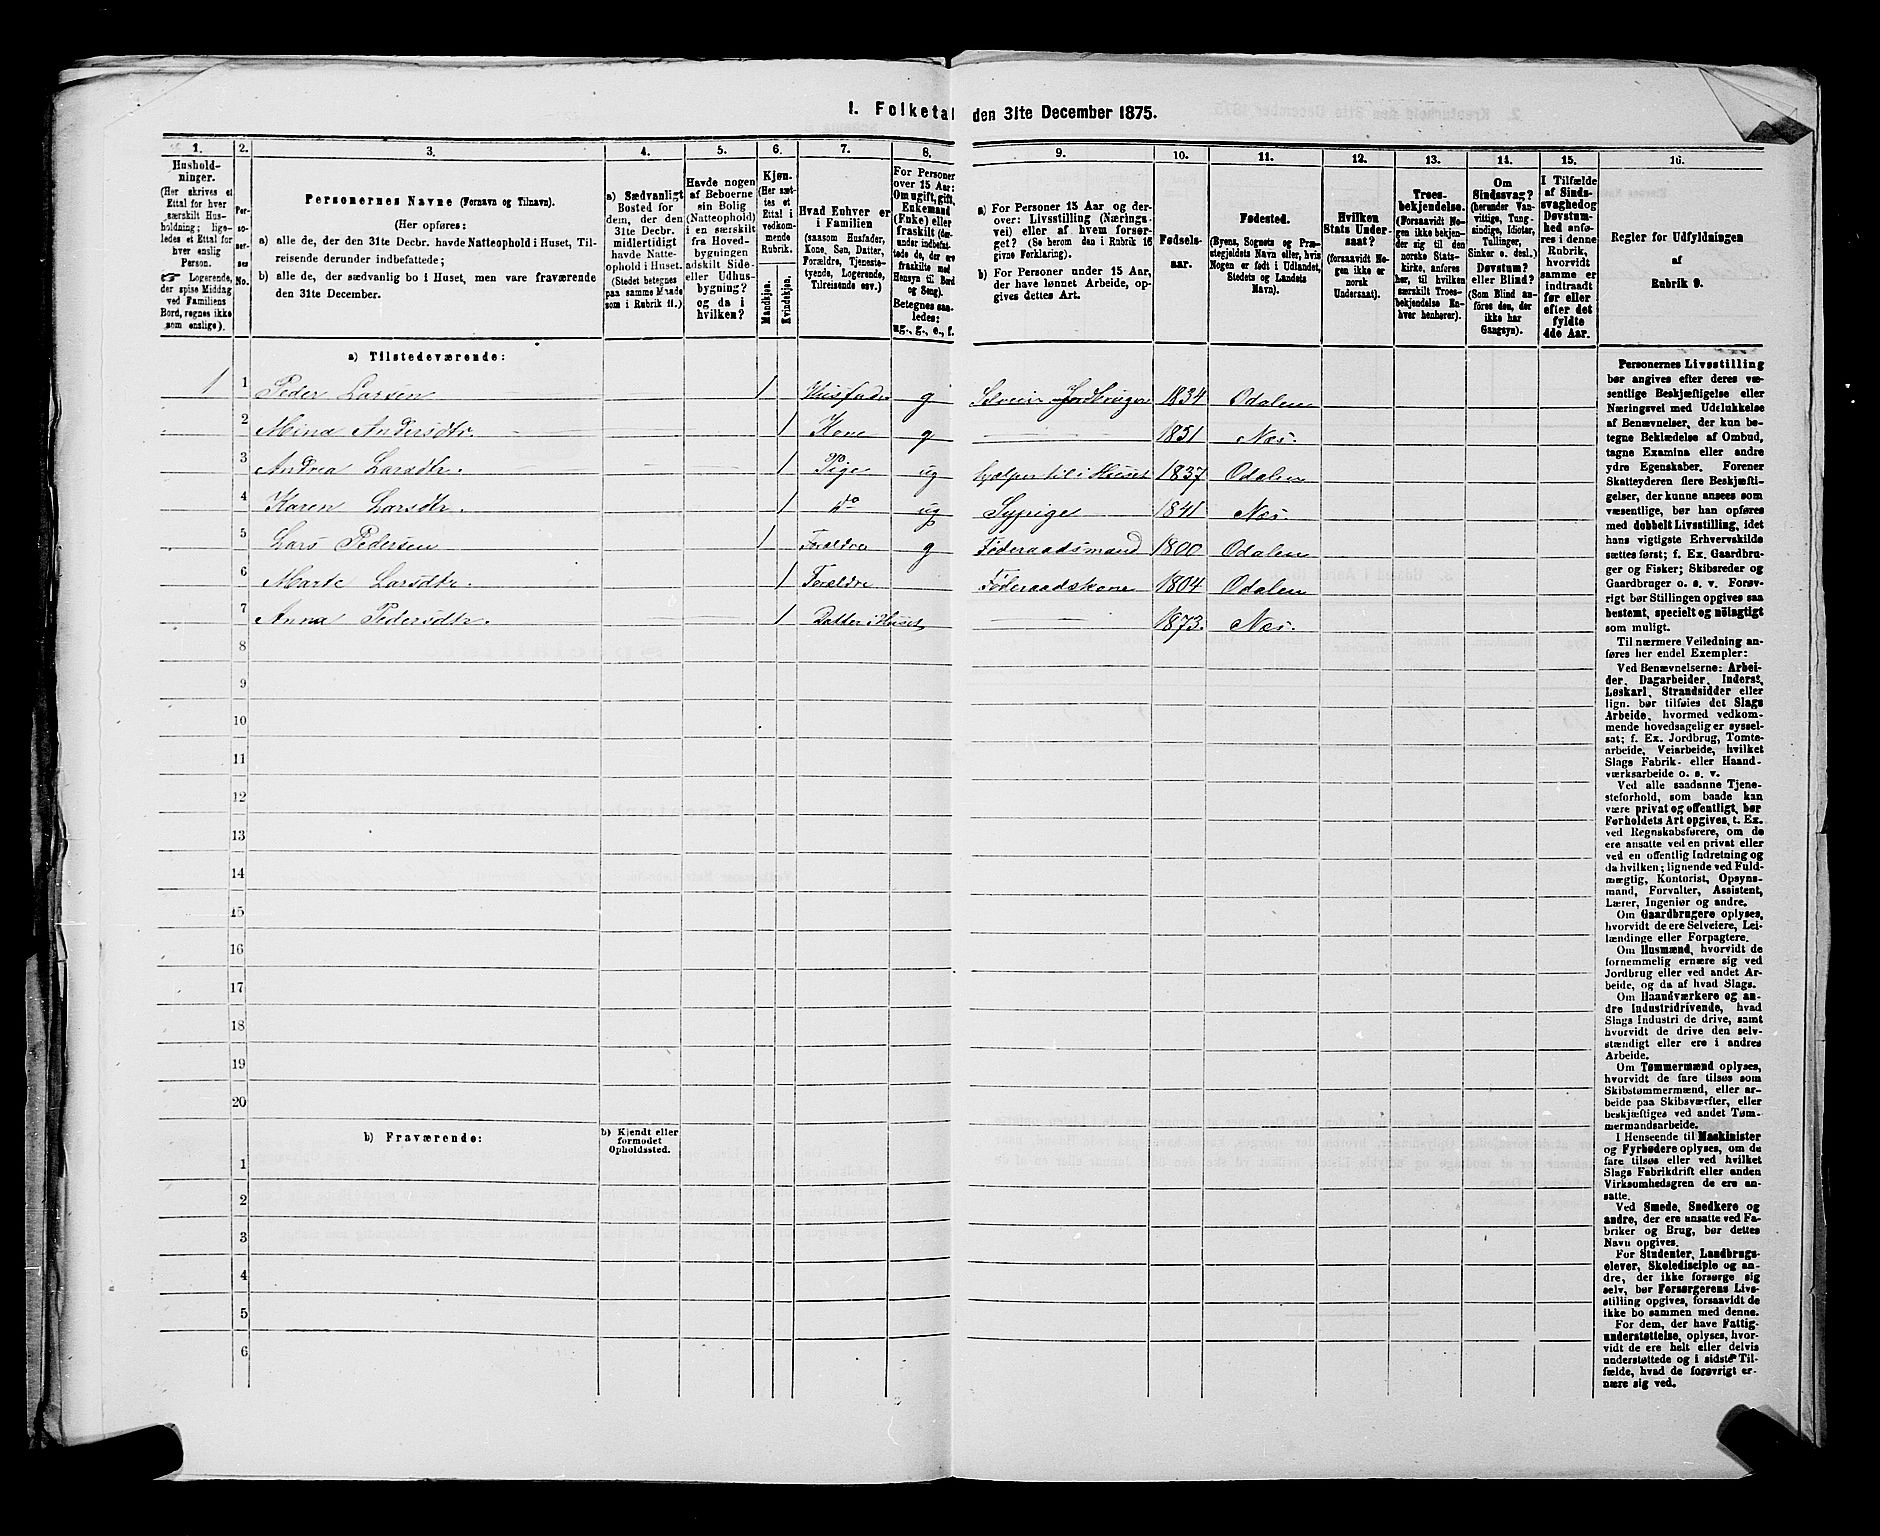 1. Folketal den 31te December 1875.
1.
2.
3.
4.
5.
6.
7.
8.
9.
10.
11.
12.
13.
14.
15.
16.
Hushold-
ninger.
(Her skrives et
Ettal for hver
særskilt Hus-
holdning; lige-
ledes et Ettal for
hver enslig
Person.
☞ Logerende,
der spise Middag
ved Familiens
Bord, regnes ikke
som enslige).
Per-
so-
ner-
nes
No.
Personernes Navne (Fornavn og Tilnavn).
(Her opføres:
a) alle de, der den 31te Decbr. havde Natteophold i Huset, Til-
reisende derunder indbefattede;
b) alle de, der sædvanlig bo i Huset, men vare fraværende
den 31te December.
a) Sædvanligt
Bosted for
dem, der den
31te Decbr.
midlertidigt
havde Natte-
ophold i Huset.
(Stedet betegnes
paa samme Maade
som i Rubrik 11.)
Havde nogen
af Beboerne
sin Bolig
(Natteophold)
i en særskilt
fra Hoved-
bygningen
adskilt Side-
eller Udhus-
bygning?
og da i
hvilken?
Kjøn.
(Her sæt-
tes et
Ettal i
vedkom-
mende
Rubrik.
Mandkjøn.
Kvindekjøn.
Hvad Enhver er
i Familien
(saasom Husfader,
Kone, Søn, Datter,
Forældre, Tjeneste-
tyende, Logerende,
Tilreisende osv.)
For Personer
over 15 Aar:
Om ugift, gift,
Enkemand
(Enke) eller
fraskilt (der-
under indbefat-
tede de, der ere
fraskilte med
Hensyn til Bord
og Seng).
Betegnes saa-
ledes:
ug., g., e., f.
a) For Personer 15 Aar og der-
over: Livsstilling (Nærings-
vei) eller af hvem forsør-
get? (Se herom den i Rubrik 16
givne Forklaring).
b) For Personer under 15 Aar,
der have lønnet Arbeide, op-
gives dettes Art.
Fødsels-
aar.
Fødested.
(Byens, Sognets og Præ-
stegjeldets Navn eller, hvis
Nogen er født i Udlandet,
Stedets og Landets
Navn).
Hvilken
Stats Under-
saat?
(forsaavidt No-
gen ikke er
norsk
Undersaat).
Troes-
bekjendelse.
(Forsaavidt No-
gen ikke bekjen-
der sig til den
norske Stats-
kirke, anføres
her, til hvilken
særskilt Troes-
bekjendelse En-
hver henhører).
Om
Sindssvag?
(herunder Van-
vittige, Tung-
sindige, Idioter,
Tullinger,
Sinker o. desl.)
Døvstum?
eller Blind?
(Som Blind an-
føres den, der
ikke har
Gangsyn).
I Tilfælde
af Sinds-
svaghed og
Døvstum-
hed anfø-
res i denne
Rubrik,
hvorvidt
samme er
indtraadt
før eller
efter det
fyldte
4de Aar.
Regler for Udfyldningen
af
Rubrik 9.
a) Tilstedeværende:
1 1 Peder Larsen 1 Husfader g Selveier Jordbruger 1834 Odalen
2 Mina Andersdtr. 1 Kone g 1851 Næs.
3 Andrea Larsdtr. 1 Pige ug hjælper til i Huset 1837 Odalen
4 Karen Larsdtr. 1 do ug Sypige 1841 Næs.
5 Lars Pedersen 1 Forældre g Føderaadsmand 1800 Odalen
6 Marte Larsdtr. 1 Forældre Føderaadskone 1804 Odalen
7 Anna Pedersdtr. 1 Datter i Huset 1873. Næs.
8
10
11
12
13
14
15
16
17
18
19
20
b) Fraværende:
b) Kjendt eller
formodet
Opholdssted.
1
2
3
4
5
6
Personernes Livsstilling
bør angives efter deres væ-
sentlige Beskjæftigelse eller
Næringsvei med Udelukkelse
af Benævnelser, der kun be-
tegne Beklædelse af Ombud,
tagne Examina eller andre
ydre Egenskaber. Forener
Skatteyderen flere Beskjæfti-
gelser, der kunne ansees som
væsentlige, bør han opføres
med dobbelt Livsstilling, idet
hans vigtigste Erhvervskilde
sættes først; f. Ex. Gaardbru-
ger og Fisker; Skibsreder og
Gaardbruger o. s. v. Forøv-
rigt bør Stillingen opgives saa
bestemt, specielt og nöiagtigt
som muligt.
Til nærmere Veiledning an-
føres her endel Exempler:
Ved Benævnelserne: Arbei-
der, Dagarbeider, Inderst,
Løskarl, Strandsidder eller
lign. bør tilføies det Slags
Arbeide, hvormed vedkom-
mende hovedsagelig er syssel-
sat; f. Ex. Jordbrug, Tomte-
arbeide, Veiarbeide, hvilket
Slags Fabrik- eller Haand-
værksarbeide o. s. v.
Ved alle saadanne Tjene-
steforhold, som baade kan
være privat og offentligt, bør
Forholdets Art opgives, t. Ex.
ved Regnskabsførere, om de
ere ansatte ved en privat eller
ved en offentlig Indretning og
da hvilken; lignende ved Fuld-
mægtig, Kontorist, Opsyns-
mand, Forvalter, Assistent,
Lærer, Ingeniør og andre.
Om Gaardbrugere oplyses,
hvorvidt de ere Selveiere, Lei-
lændinge eller Forpagtere.
Om Husmænd, hvorvidt de
fornemmelig ernære sig ved
Jordbrug eller ved andet Ar-
beide, og da af hvad Slags.
Om Haandværkere og an-
dre Industridrivende, hvad
Slags Industri de drive, samt
hvorvidt de drive den selv-
stændigt eller ere i andres
Arbeide.
Om Tømmermænd oplyses,
hvorvidt de fare tilsøs som
Skibstømmermænd, eller ar-
beide paa Skibsværfter, eller
beskjæftiges ved andet Tøm-
mermandsarbeide.
I Henseende til Maskinister
og Fyrbødere oplyses, om de
fare tilsøs eller ved hvilket
Slags Fabrikdrift eller anden
Virksomhedsgren de ere an-
satte.
Ved Smede, Snedkere og
andre, der ere ansatte ved Fa-
briker og Brug, bør dettes
Navn opgives.
For Studenter, Landbrugs-
elever, Skoledisciple og an-
dre, der ikke forsørge sig
selv, bør Forsørgerens Livs-
stilling opgives, forsaavidt de
ikke bo sammen med denne.
For dem, der have Fattig-
understøttelse, oplyses, hvor-
vidt de ere helt eller delvis
understøttede og i sidste Til-
fælde, hvad de forøvrigt er-
nære sig ved.